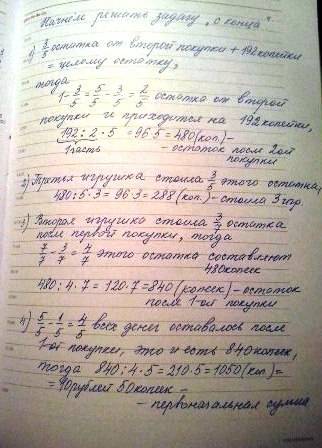 Начнём решать задачу „с конца"
1) 3/5 остатка от второй покупки + 192 копейки
= целому остатку,
тогда
1-3/5=5/5-3/5=2/5 остатка от второй
покупки и приходится на 192 копейки,
192:2·5=96·5=480(коп.)-
1часть - остаток после 2ой
покупки
2) Третья игрушка стоила 3/5 этого остатка,
480:5·3=96·3=288(коп.)-стоила 3 игр.
3) Вторая игрушка стоила 3/7 остатка
после первой покупки, тогда
7/7-3/7=4/7 этого остатка составляют
480копеек
480:4·7=120·7=840(копеек)-остаток
после 1-ой покупки
4) 5/5-1/5=4/5 всех денег оставалось после
1-ой покупки, это и есть 840копеек,
тогда 840:4·5=210·5=1050(коп)=
=10рублей 50копеек-
- первоначальная сумма